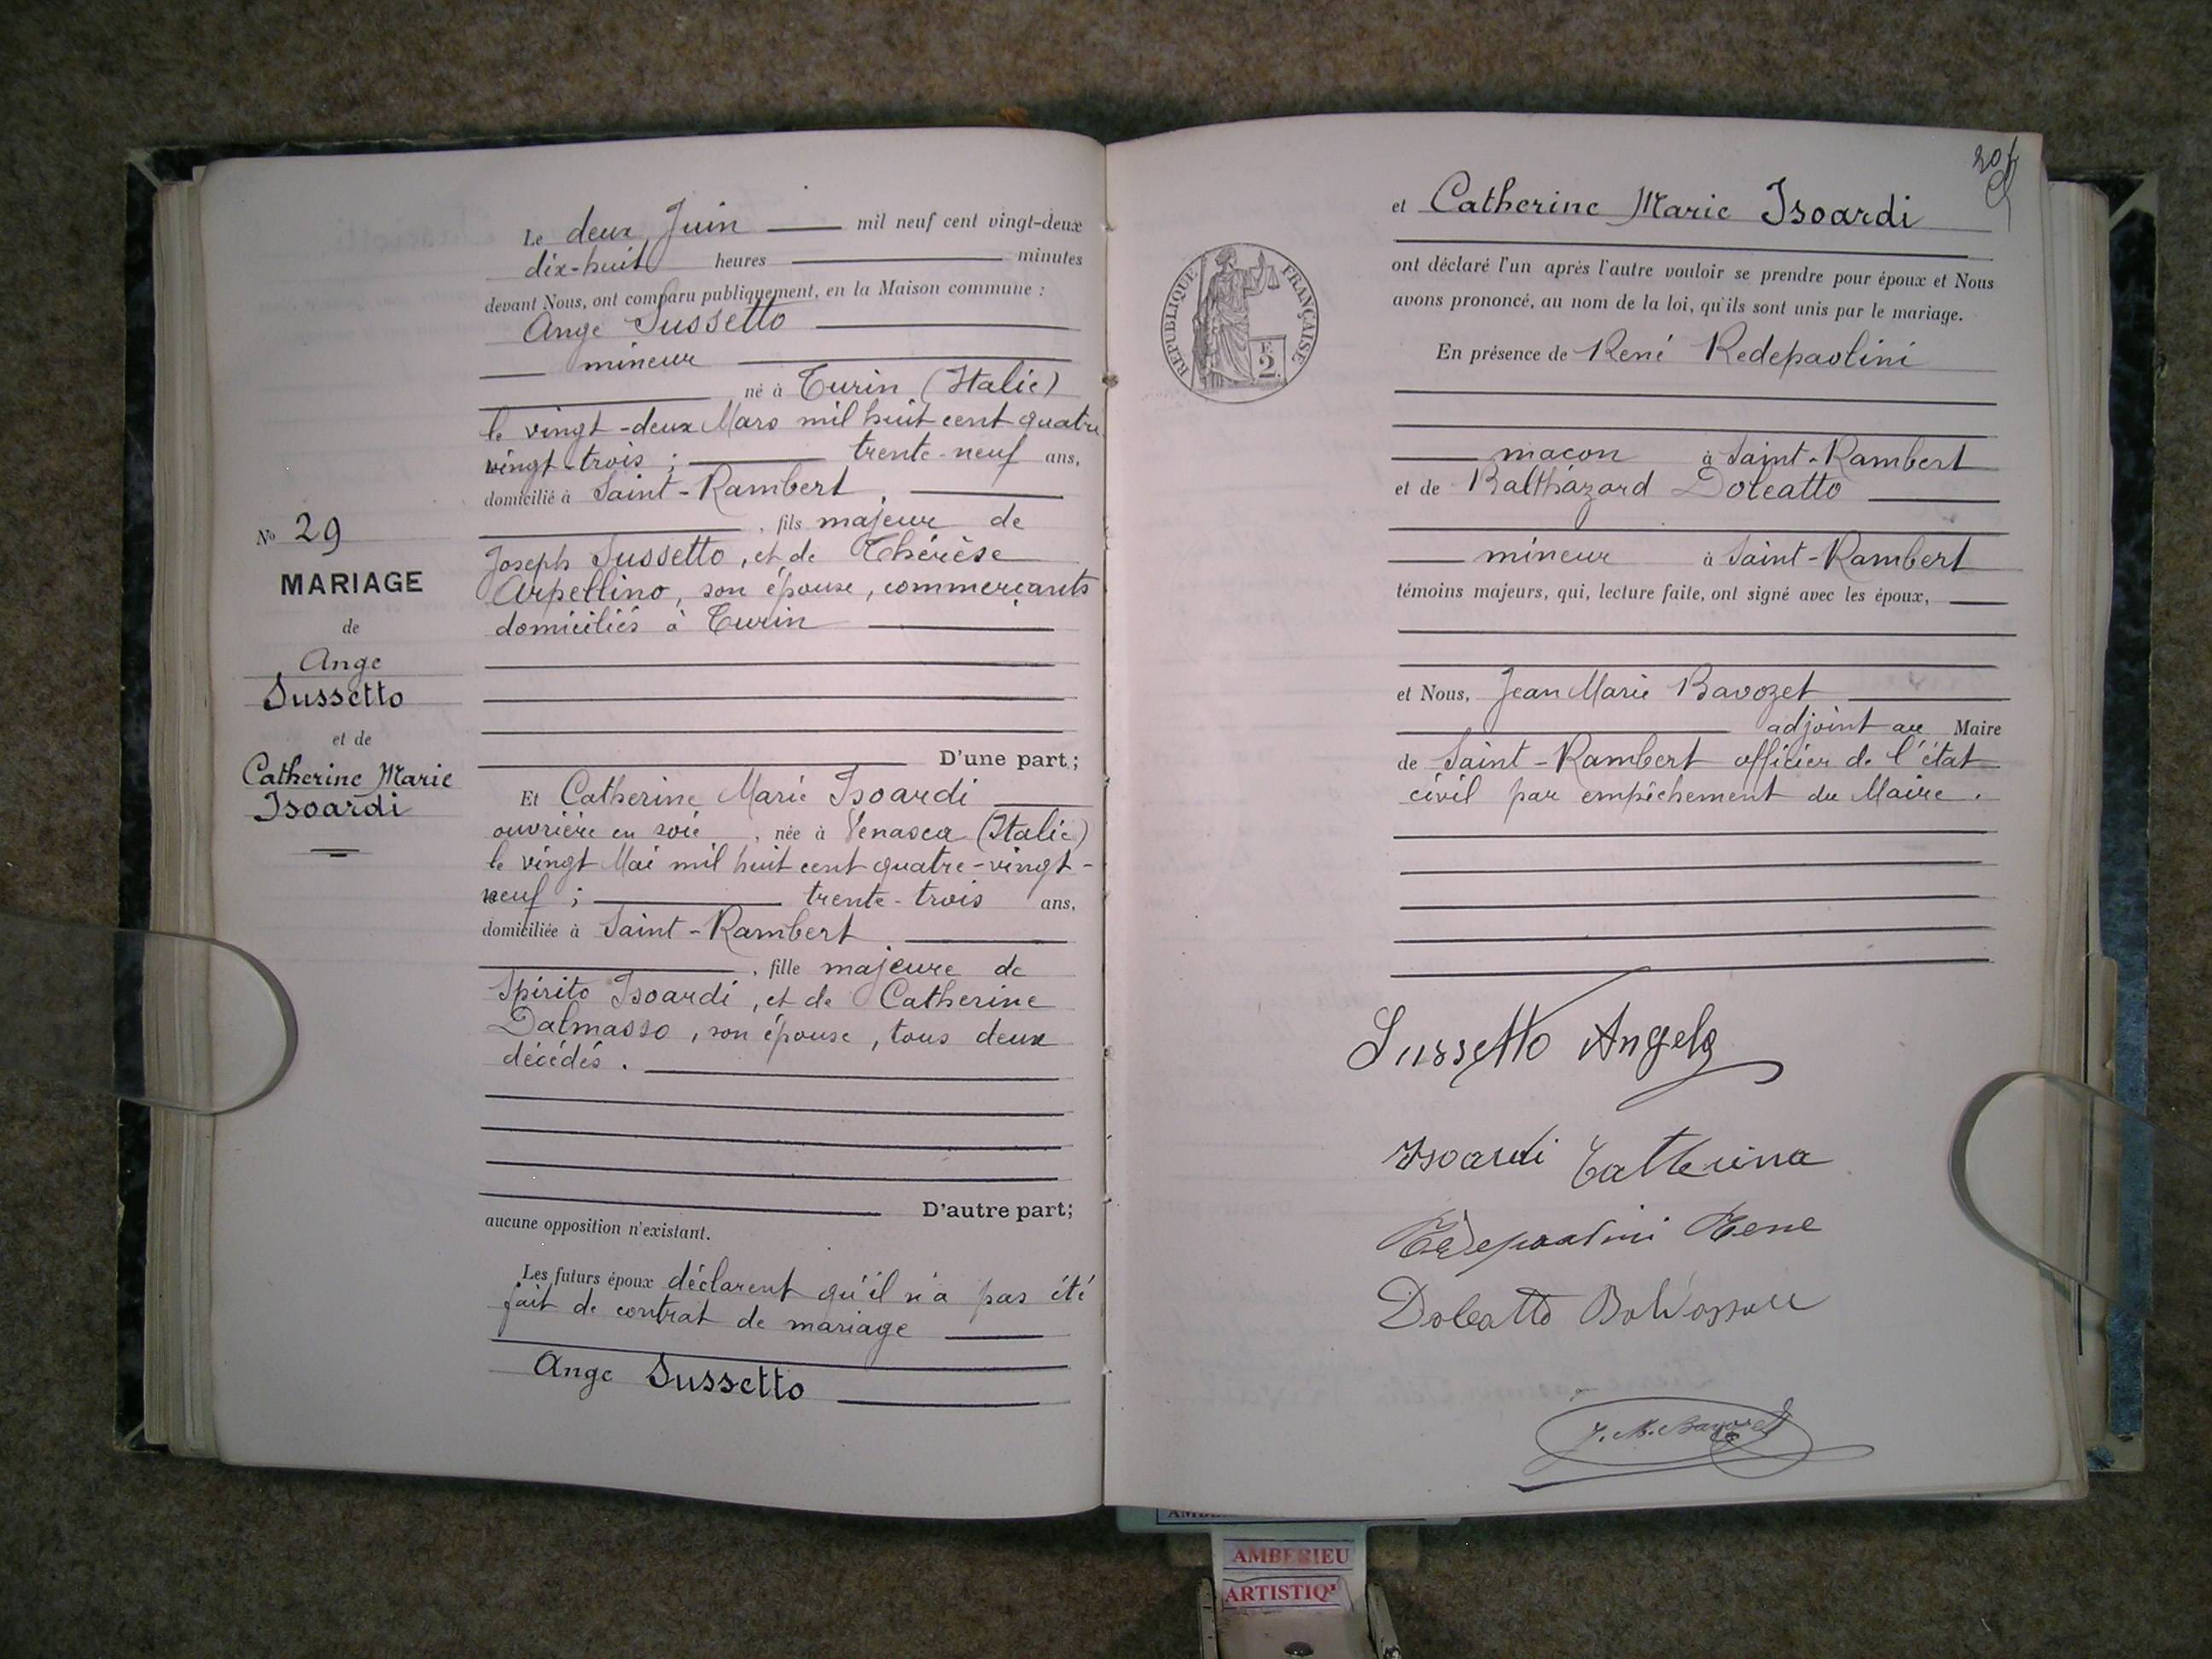 Le deux Juin mil neuf cent vingt-deux
dix-huit heures minutes
devant Nous, ont comparu publiquement, en la Maison commune :
Ange Sussetto
mineur
né à Turin (Italie)
le vingt-deux Mars mil huit cent quatre
vingt-trois ; trente-neuf ans,
domicilié à Saint-Rambert,
, fils majeur de
Joseph Sussetto, et de Thérèse
Arpellino, son épouse, commerçants
domiciliés à Turin
D'une part;
No 29
MARIAGE
de
Ange
Sussetto
et de
Catherine Marie
Isoardi
Et Catherine Marie Isoardi
ouvrière en soie, née à Venasca (Italie)
le vingt Mai mil huit cent quatre-vingt-
neuf ; trente-trois ans,
domiciliée à Saint-Rambert
, fille majeure de
Spirito Isoardi, et de Catherine
Dalmasso, son épouse, tous deux
décédés.
D'autre part;
aucune opposition n'existant.
Les futurs époux déclarent qu'il n'a pas été
fait de contrat de mariage
Ange Sussetto
et Catherine Marie Isoardi
ont déclaré l'un après l'autre vouloir se prendre pour époux et Nous
avons prononcé, au nom de la loi, qu'ils sont unis par le mariage.
RÉPUBLIQUE FRANÇAISE
F.
2.
En présence de René Redepaolini
maçon à Saint-Rambert
et de Balthazard Dolcatto
mineur à Saint-Rambert
témoins majeurs, qui, lecture faite, ont signé avec les époux,
et Nous, Jean Marie Bavozet
adjoint au Maire
de Saint-Rambert officier de l'état
civil par empêchement du Maire.
Sussetto Angelo
Isoardi Catterina
Redepaolini Rene
Dolcatto
J. M. Bavozet
AMBERIEU
ARTISTIQ